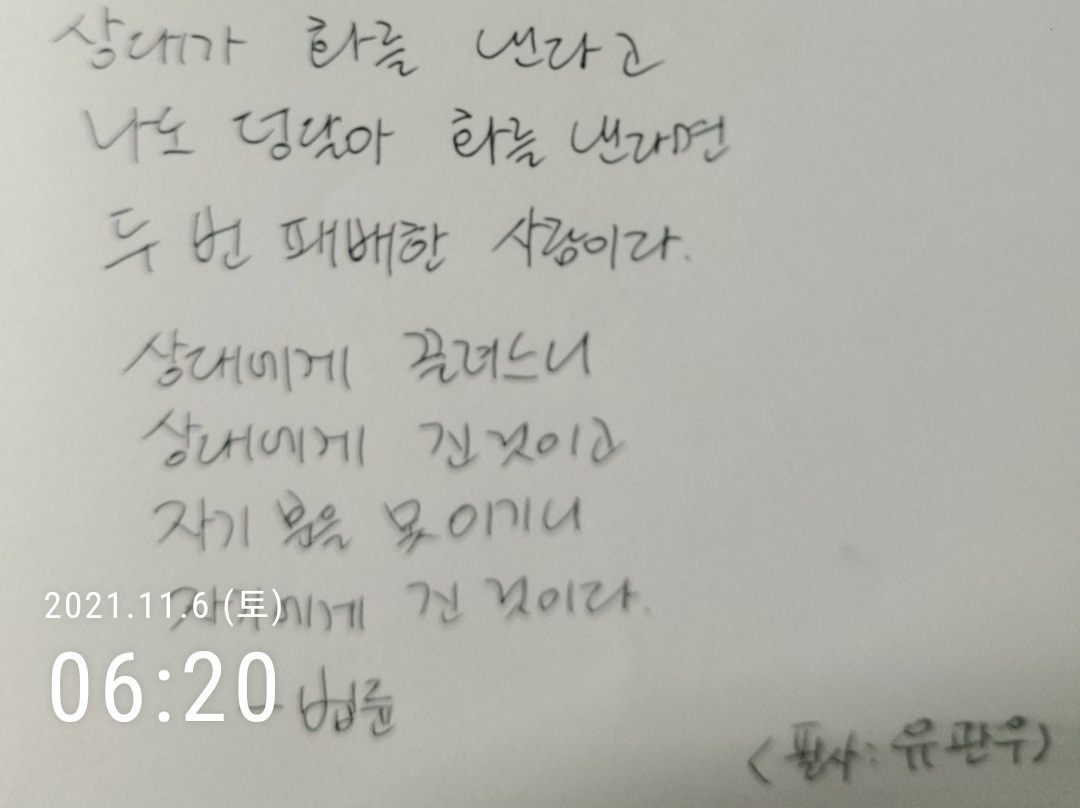 상대가 화를 낸다고
나도 덩달아 화를 낸다면
두 번 패배한 사람이다.
상대에게 끌려드니
상대에게 진 것이고
자기 분을 못 이기니
에게 진 것이다.
2021.11.6 (토)
06:20
- 법륜
<필사: 유관우>